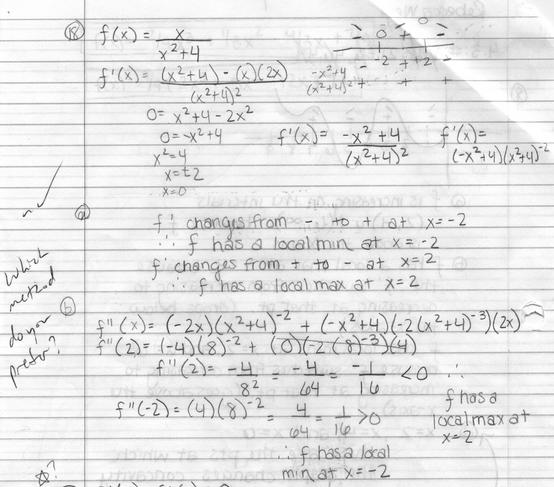 ⑱ f(x) = x / x²+4
- 0 + 0 -
-2 +2
f'(x) = (x²+4) - (x)(2x) / (x²+4)²
-x²+4 / (x²+4)² + + +
0 = x²+4 - 2x²
0 = -x²+4 f'(x) = -x²+4 / (x²+4)² f'(x) = (-x²+4)(x²+4)⁻²
x² = 4
x = ±2
x = 0
ⓐ
f' changes from - to + at x = -2
∴ f has a local min at x = -2
f' changes from + to - at x = 2
∴ f has a local max at x = 2
Which method do you prefer?
ⓑ
f''(x) = (-2x)(x²+4)⁻² + (-x²+4)(-2(x²+4)⁻³)(2x)
f''(2) = (-4)(8)⁻² + (0)(-2(8)⁻³)(4)
f''(2) = -4 / 8² = -4 / 64 = -1 / 16 < 0 ∴ f has a local max at x = 2
f''(-2) = (4)(8)⁻² = 4 / 64 = 1 / 16 > 0
∴ f has a local
min at x = -2
☆?